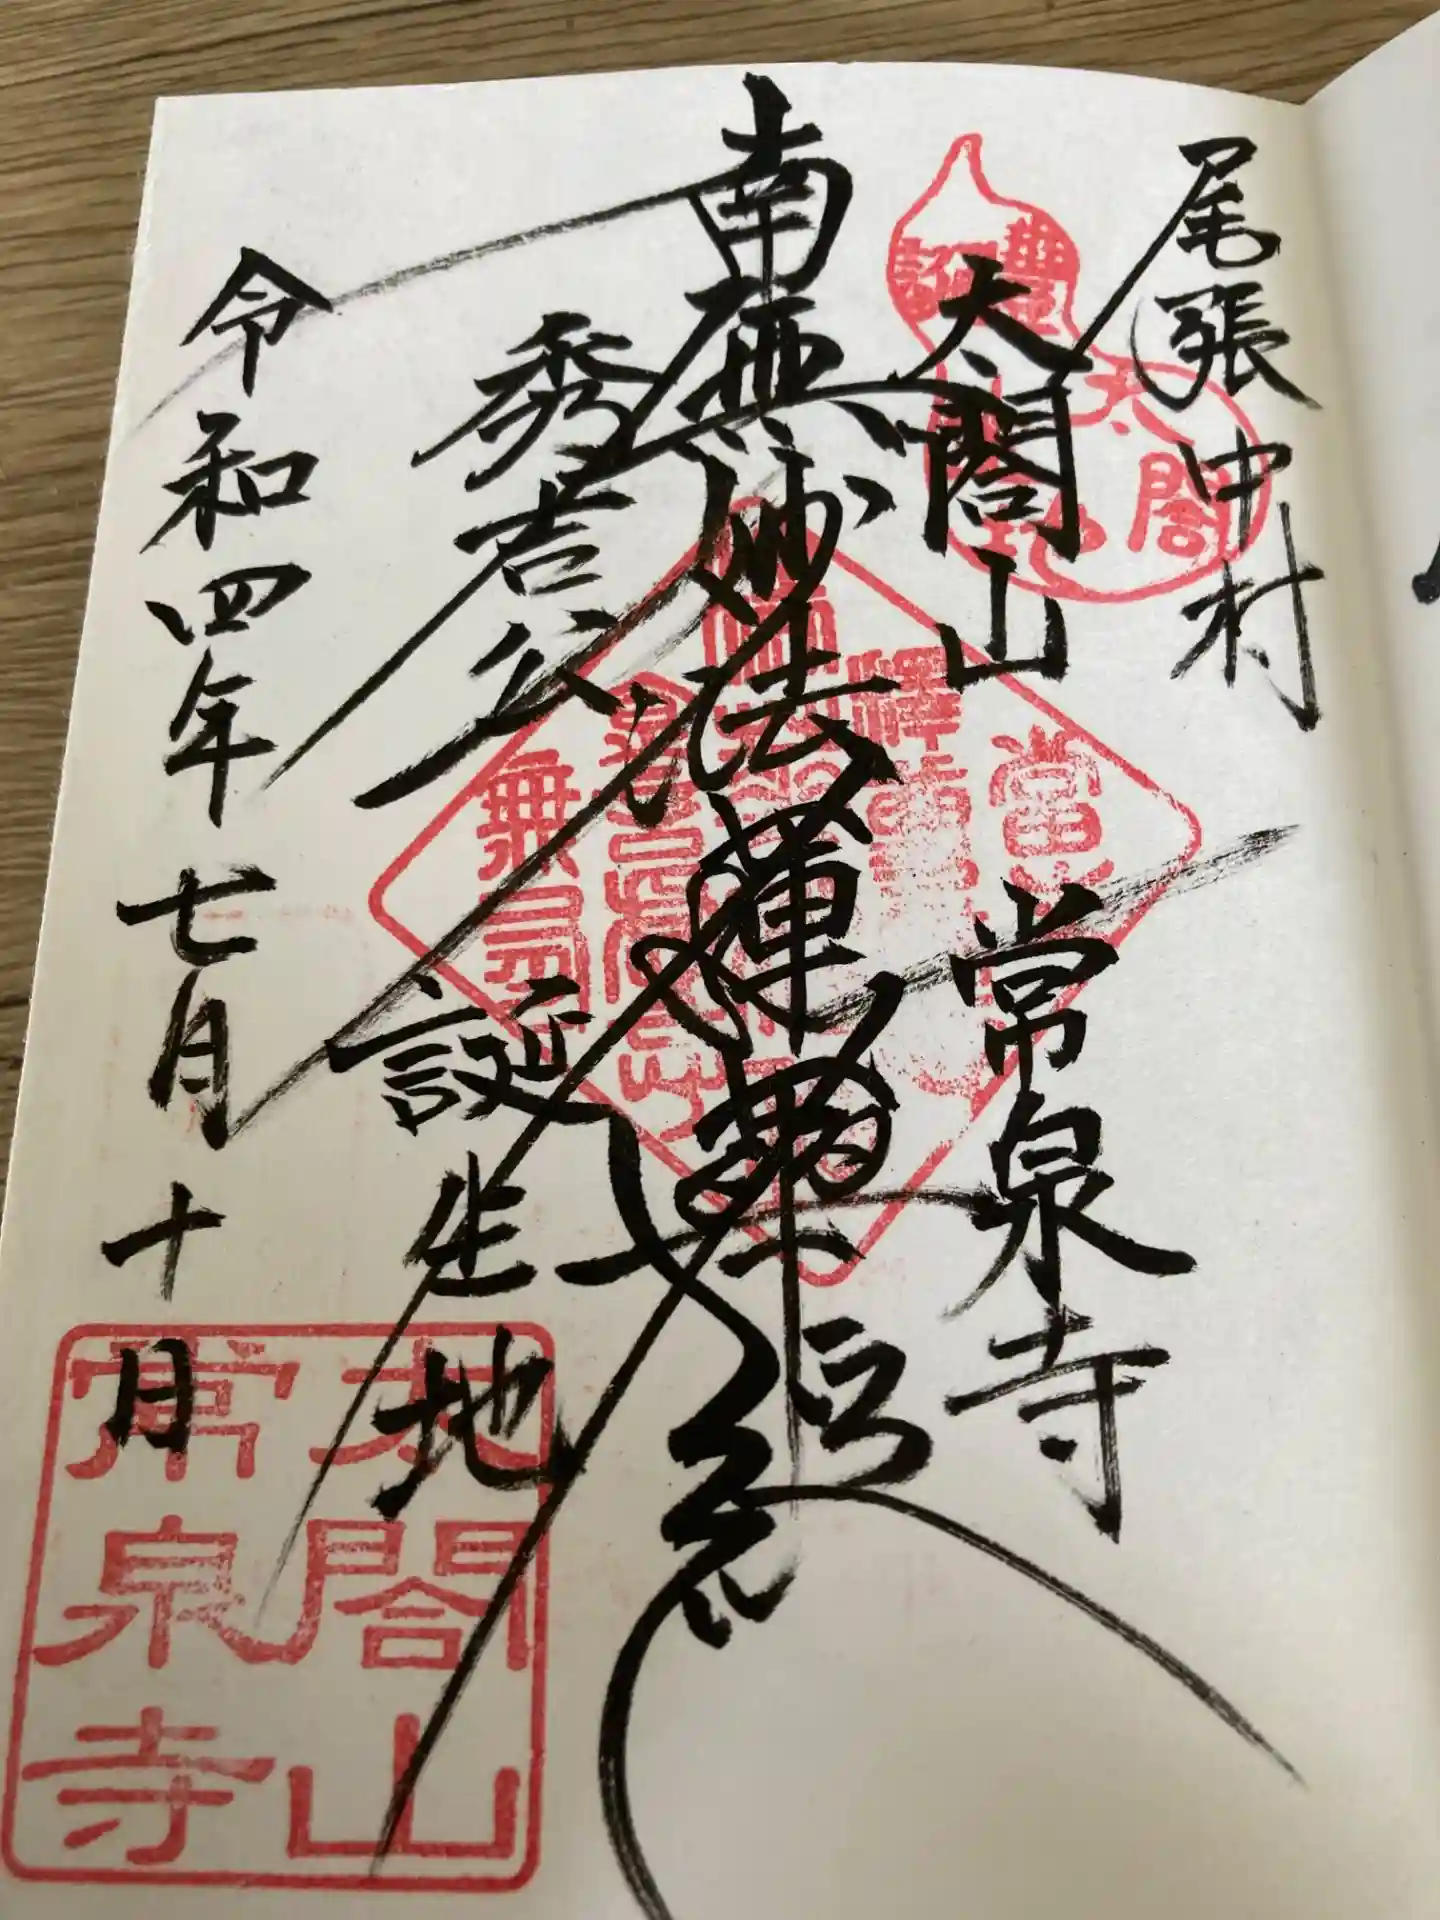 尾張中村
太閤山 常泉寺
南無妙法蓮華経
秀吉公 誕生地
令和四年七月十日
太閤
太閤山
常泉寺